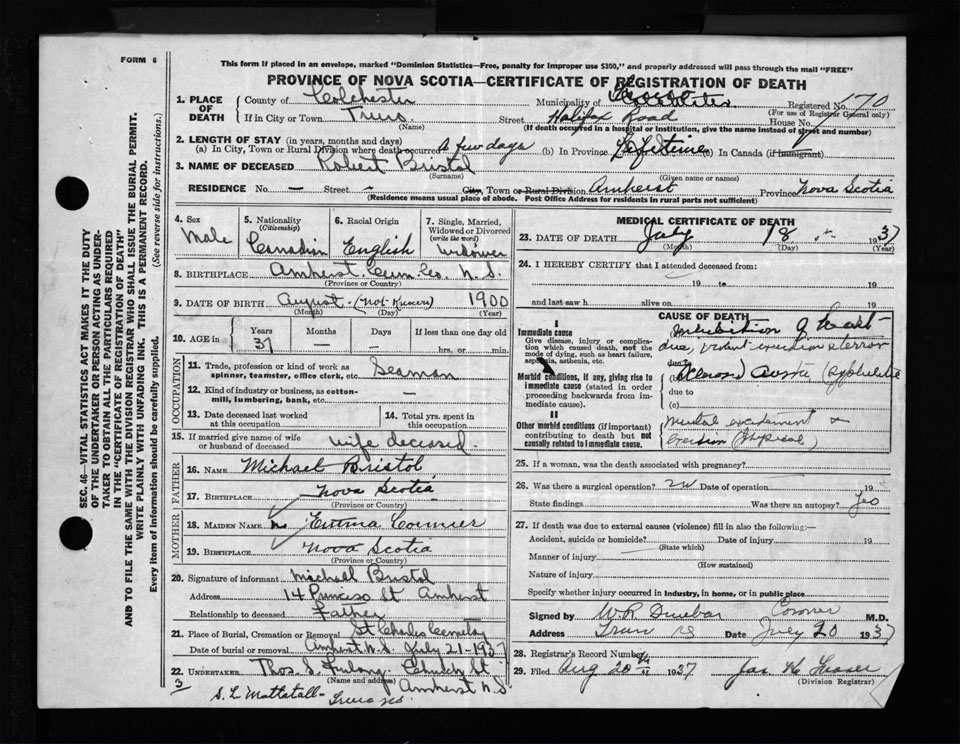 FORM 6
This form if placed in an envelope, marked "Dominion Statistics—Free, penalty for improper use $300," and properly addressed will pass through the mail "FREE"
PROVINCE OF NOVA SCOTIA—CERTIFICATE OF REGISTRATION OF DEATH
1. PLACE OF DEATH { County of Colchester Municipality of Registered No. 170
(For use of Registrar General only)
If in City or Town Truro Street Halifax Road House No.
(Name) (If death occurred in a hospital or institution, give the name instead of street and number)
2. LENGTH OF STAY (in years, months and days)
(a) In City, Town or Rural Division where death occurred A few days (b) In Province Lifetime (c) In Canada (if immigrant)
3. NAME OF DECEASED Robert Bristol
(Surname) (Given name or names)
RESIDENCE No. — Street — City, Town or Rural Division Amherst Province Nova Scotia
(Residence means usual place of abode. Post Office Address for residents in rural parts not sufficient)
4. Sex
Male
5. Nationality
(Citizenship)
Canadian
6. Racial Origin
English
7. Single, Married, Widowed or Divorced
(write the word)
Widower
8. BIRTHPLACE Amherst Cum Co. N.S.
(Province or Country)
9. DATE OF BIRTH August (Not Known) 1900
(Month) (Day) (Year)
10. AGE in { Years 37 Months — Days — If less than one day old
hrs. or min.
OCCUPATION
11. Trade, profession or kind of work as spinner, teamster, office clerk, etc. Seaman
12. Kind of industry or business, as cotton-mill, lumbering, bank, etc. —
13. Date deceased last worked at this occupation
14. Total yrs. spent in this occupation
15. If married give name of wife or husband of deceased wife deceased.
FATHER
16. NAME Michael Bristol
17. BIRTHPLACE Nova Scotia
(Province or Country)
MOTHER
18. MAIDEN NAME Emma Cormier
19. BIRTHPLACE Nova Scotia
(Province or Country)
20. Signature of informant Michael Bristol
Address 14 Princess St Amherst
Relationship to deceased Father
21. Place of Burial, Cremation or Removal St Charles Cemetery
Date of burial or removal Amherst N.S. July 21-1937
22. UNDERTAKER Thos. S. Furlong. Church St
(Name and address) Amherst N.S.
3
S. L. Mattatall— Truro NS.
MEDICAL CERTIFICATE OF DEATH
23. DATE OF DEATH July 18 1937
(Month) (Day) (Year)
24. I HEREBY CERTIFY that I attended deceased from:
19 to 19
and last saw h alive on 19
CAUSE OF DEATH
I
Immediate cause
Give disease, injury or complication which caused death, not the mode of dying, such as heart failure, asphyxia, asthenia, etc.
of heart
due, violent exertion & terror
Morbid conditions, if any, giving rise to immediate cause (stated in order proceeding backwards from immediate cause).
(b)
due to
(c)
II
Other morbid conditions (if important) contributing to death but not causally related to immediate cause.
Mental excitement &
exertion (Physical)
25. If a woman, was the death associated with pregnancy?
26. Was there a surgical operation? no Date of operation 19
State findings Was there an autopsy? Yes
27. If death was due to external causes (violence) fill in also the following:—
Accident, suicide or homicide? Date of injury 19
(State which)
Manner of injury
(How sustained)
Nature of injury
Specify whether injury occurred in Industry, in home, or in public place
Signed by W R Dunbar Coroner M.D.
Address Truro NS Date July 20 1937
28. Registrar's Record Number
29. Filed Aug 20th 1937 Jas H Fraser
(Division Registrar)
SEC. 46—VITAL STATISTICS ACT MAKES IT THE DUTY
OF THE UNDERTAKER OR PERSON ACTING AS UNDER-
TAKER TO OBTAIN ALL THE PARTICULARS REQUIRED
IN THE "CERTIFICATE OF REGISTRATION OF DEATH"
AND TO FILE THE SAME WITH THE DIVISION REGISTRAR WHO SHALL ISSUE THE BURIAL PERMIT.
WRITE PLAINLY WITH UNFADING INK. THIS IS A PERMANENT RECORD.
Every item of information should be carefully supplied. (See reverse side for instructions.)